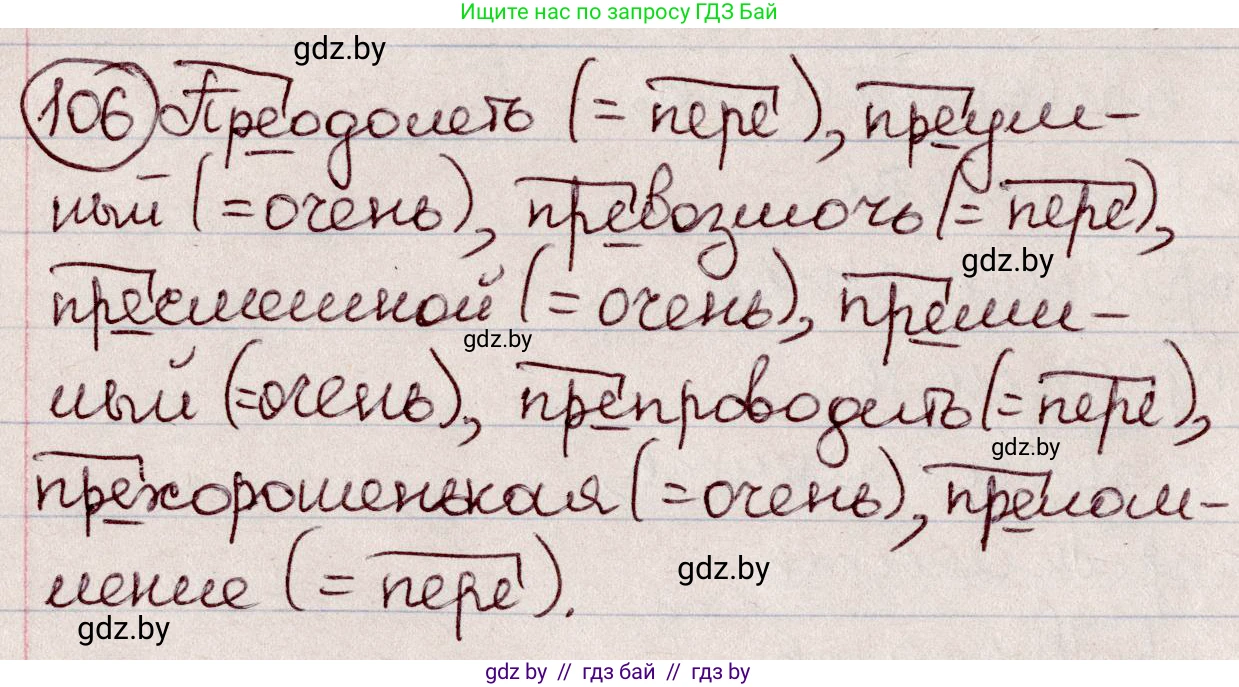 Ищите нас по запросу ГДЗ Бай
gdz.by
106 Преодолеть (= пере), преум-
ный (= очень), превозмочь (= пере),
gdz.by
пресмешной (= очень), преми-
gdz.by
лый (= очень), препроводить (= пере),
gdz.by
прехорошенькая (= очень), прелом-
ление (= пере).
gdz.by
gdz.by
gdz.by // гдз бай // гдз by